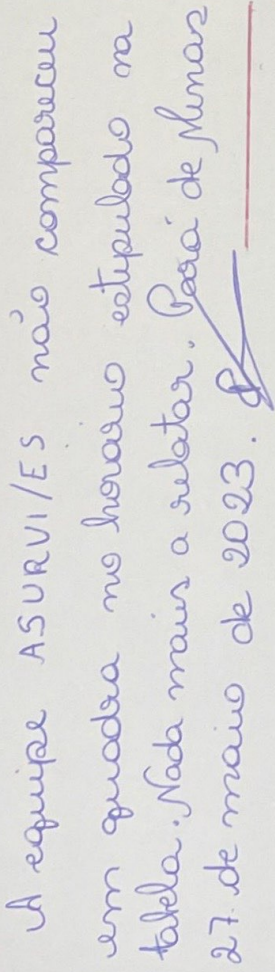 A equipe ASURVI/ES não compareceu
em quadra no horário estipulado na
tabela. Nada mais a relatar. Pará de Minas
27 de maio de 2023.